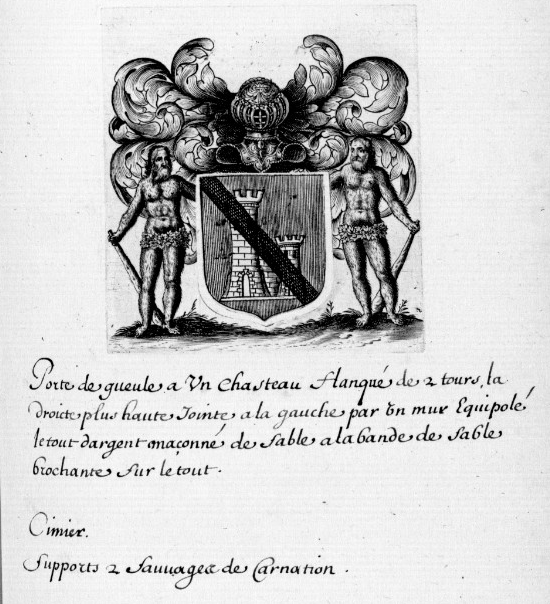 Porte de gueule a Vn Chasteau flanqué de 2 tours, la
droicte plus haute Jointe a la gauche par Vn mur Equipolé
le tout d'argent maçonné de Sable a la bande de Sable
brochante sur le tout.
Cimier.
Supports 2 Sauuages de Carnation.